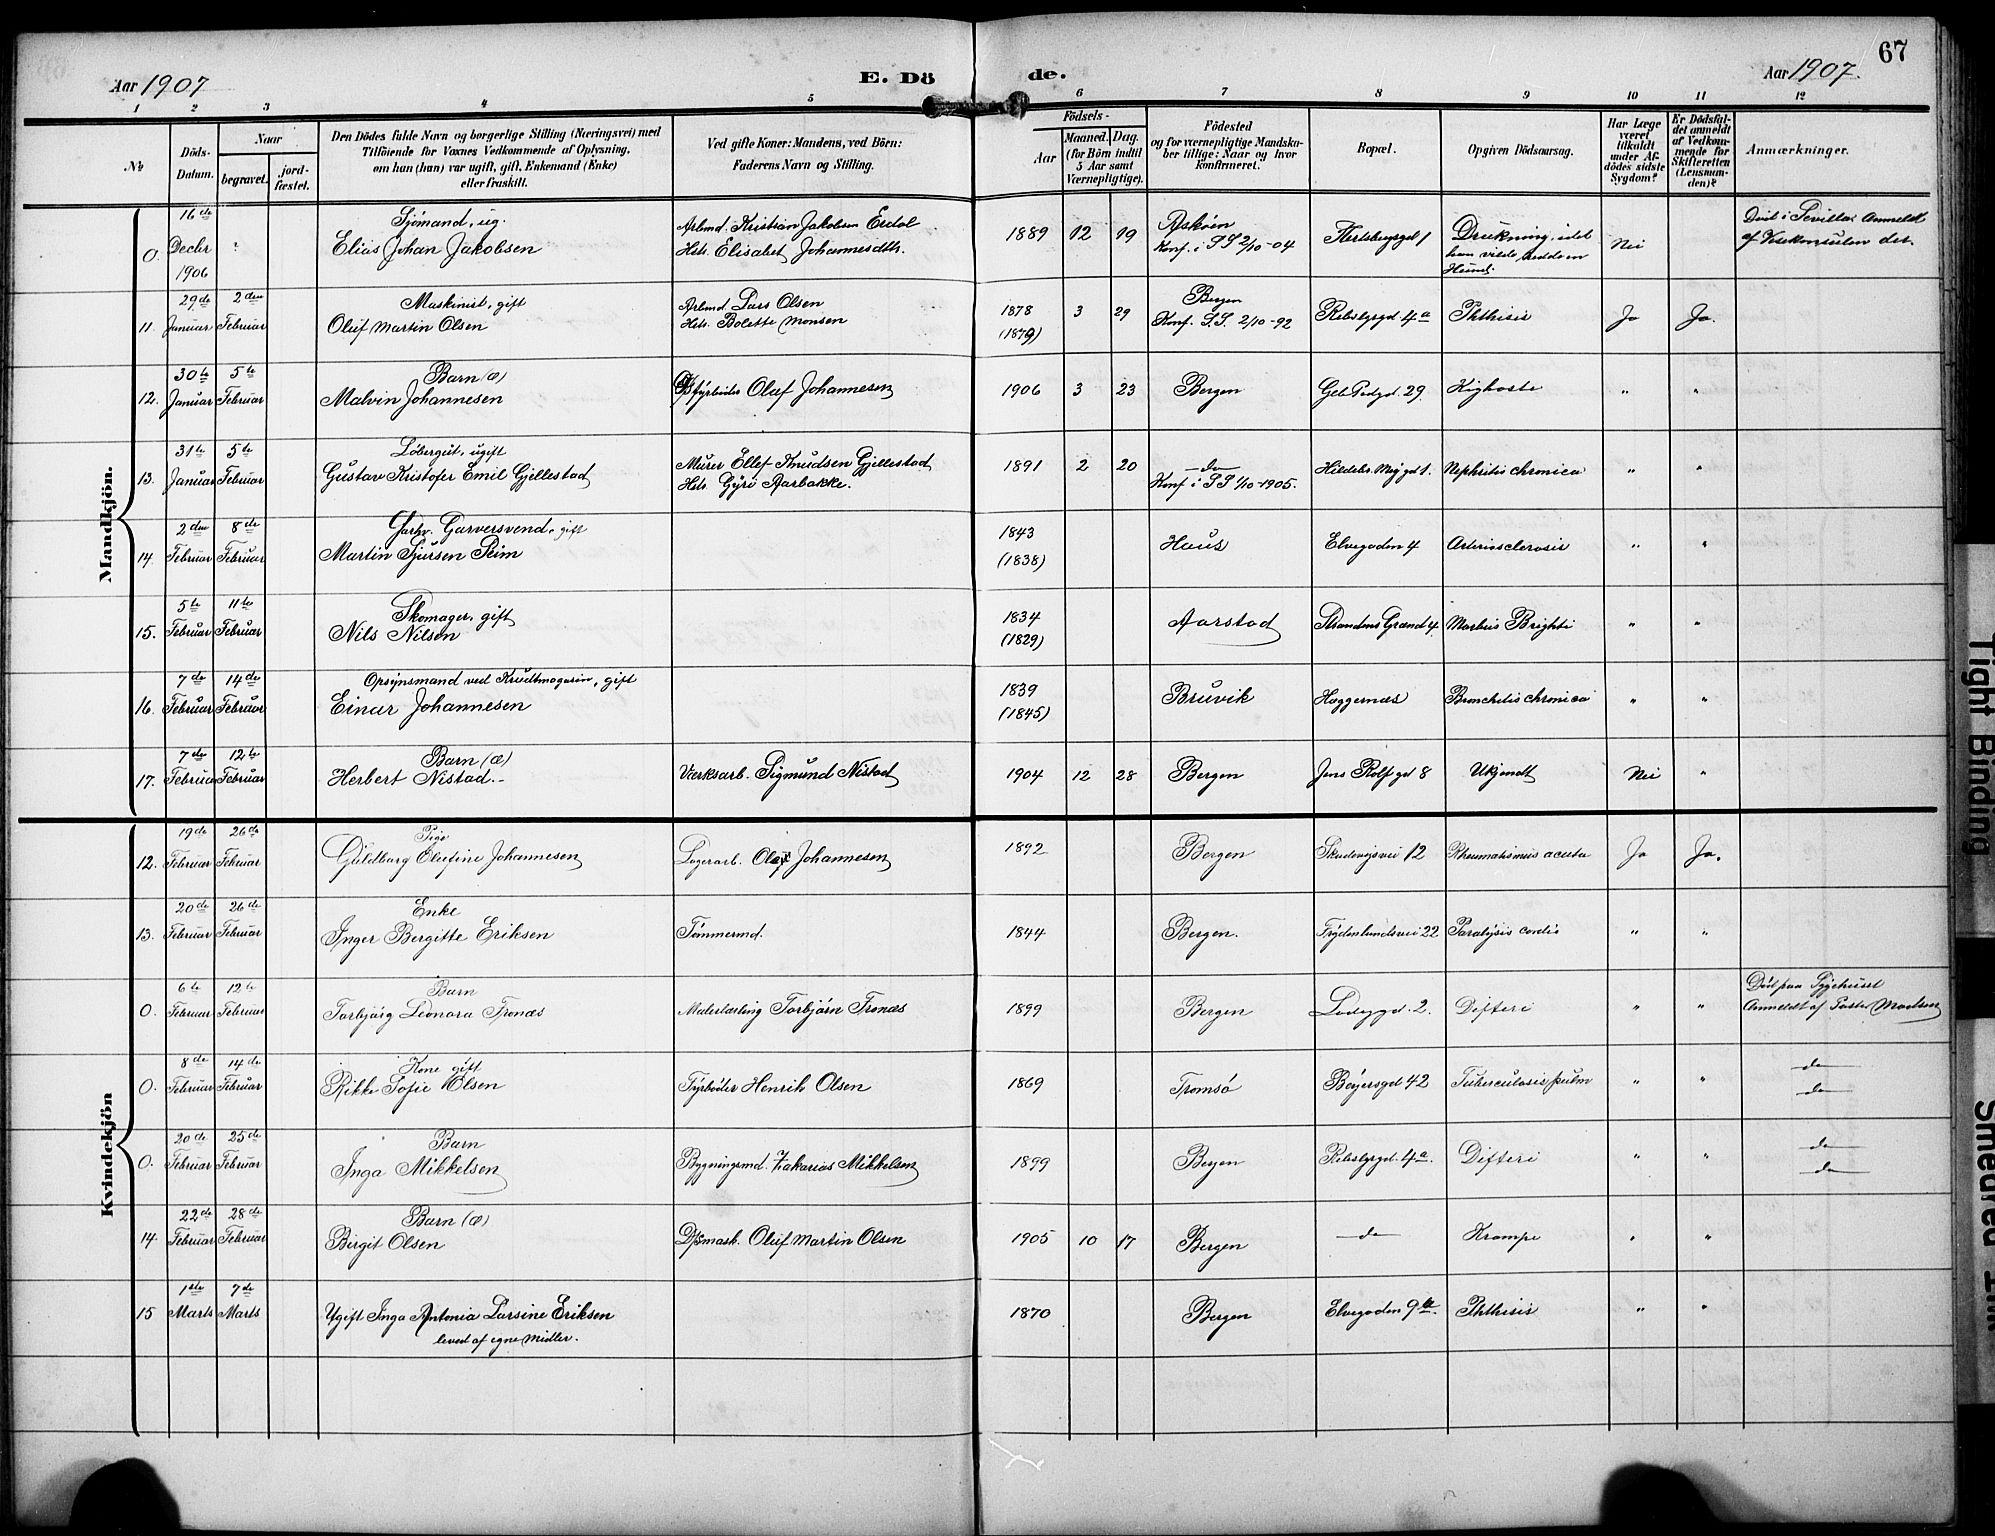 67
Aar 1907
E. Dö de.
Aar 1907.
1 2 3 4 5 6 7 8 9 10 11 12
№
Döds-Datum.
Naar
begravet.
jord-fæstet.
Den Dödes fulde Navn og borgerlige Stilling (Næringsvei) med
Tilföiende for Voxnes Vedkommende af Oplysning,
om han (hun) var ugift, gift, Enkemand (Enke)
eller fraskilt.
Ved gifte Koner: Mandens, ved Börn:
Faderens Navn og Stilling.
Födsels-
Aar
Maaned. Dag.
(for Börn indtil
5 Aar samt
Værnepligtige).
Födested
og for værnepligtige Mandska-
ber tillige: Naar og hvor
konfirmeret.
Bopæl.
Opgiven Dödsaarsag.
Har Læge
været
tilkaldt
under Af-
dödes sidste
Sygdom?
Er Dödsfal-
det anmeldt
af Vedkom-
mende for
Skifteretten
(Lensman-
den)?
Anmærkninger.
Mandkjön.
0. 16de Decbr 1906
Sjömand, ug.
Elias Johan Jakobsen
Arbmd. Kristian Jakobsen Eidol
Hstr. Elisabet Johannesdtr.
1889 12 19
Askøen
Konf. i SS 2/10-04
Drukning, idet
han vilde redde en
Hund.
Nei
Død i Sevilla. Anmeldt
af Vicekonsulen der.
11. 29de Januar 2den Februar
Maskinist, gift
Oluf Martin Olsen
Arbmd. Lars Olsen
Hstr. Bolette Monsen
1878 3 29
(1879)
Bergen
Konf. S.S. 2/10-92
Rebslagergd. 4a
Phthisis
Ja Ja.
12. 30te Januar 5te Februar
Barn (æ)
Malvin Johannesen
D/Sfyrbøder Olaf Johannesen
1906 3 23
Bergen
Geb Pedgd. 29.
Kighoste
" "
13. 31te Januar 5te Februar
Løbergut, ugift
Gustav Kristofer Emil Gjellestad
Murer Ellef Knudsen Gjellestad
Hstr. Gyri Aarbakke.
1891 2 20
do
Konf i SS 1/10-1905.
Nephritis chronica
" "
14. 2den Februar 8de Februar
Garversvend, gift
Martin Sjursen Reim
1843
(1838)
Haus
Elvegaden 4
Arteriosclerosis
" "
15. 5te Februar 11te Februar
Skomager, gift
Nils Nilsen
1834
(1829)
Aarstad
Strandens Grænd 4.
Morbus Brighti
" "
16. 7de Februar 14de Februar
Opsynsmand ved Krudtmagasin, gift
Einar Johannesen
1839
(1845)
Bruvik
Hæggernæs
Bronchitis chronica
" "
17. 7de Februar 12te Februar
Barn (æ)
Herbert Nistad.
Værksarb. Sigmund Nistad
1904 12 28
Bergen
Jens Rolf gd 8
Ukjendt
Nei "
Kvindekjön
12. 19de Februar 26de Februar
Pige
Guldborg Olufine Johannesen
Lagerarb. Olaf Johannesen
1892
Bergen
Skudeviksvei 12
Rheumatismus acuta
Ja Ja.
13. 20de Februar 26de Februar
Enke
Inger Bergitte Eriksen
Tömmermd.
1844
Bergen.
Frydenlundsvei 22
Paralysis cordis
" "
0. 6te Februar 12te Februar
Barn
Torbjörg Leonora Tronæs
Malerlærling Torbjörn Tronæs
1899
Bergen
Ladeggd. 2.
Difteri
" "
Død paa Sygehuset
Anmeldt af Pastor Madsen
0. 8de Februar 14de Februar
Kone gift
Rikke Sofie Olsen
Fyrbøder Henrik Olsen
1869
Tromsø
Beyersgd 42
Tuberculosis pulm
" "
do
do
0. 20de Februar 25de Februar
Barn
Inga Mikkelsen
Bygningsmd. Zakarias Mikkelsen
1899
Bergen
Rebslagergd. 4a.
Difteri
" "
do
do
14. 22de Februar 28de Februar
Barn (æ)
Birgit Olsen
D/Smask. Oluf Martin Olsen
1905 10 17
Bergen
do
Krampe
" "
15 1ste Marts 7de Marts
Ugift Inga Antonia Larsine Eriksen
leved af egne Midler.
1870
Bergen
Elvegaden 9a
Phthisis
" "
Tight Binding
Smeared Ink